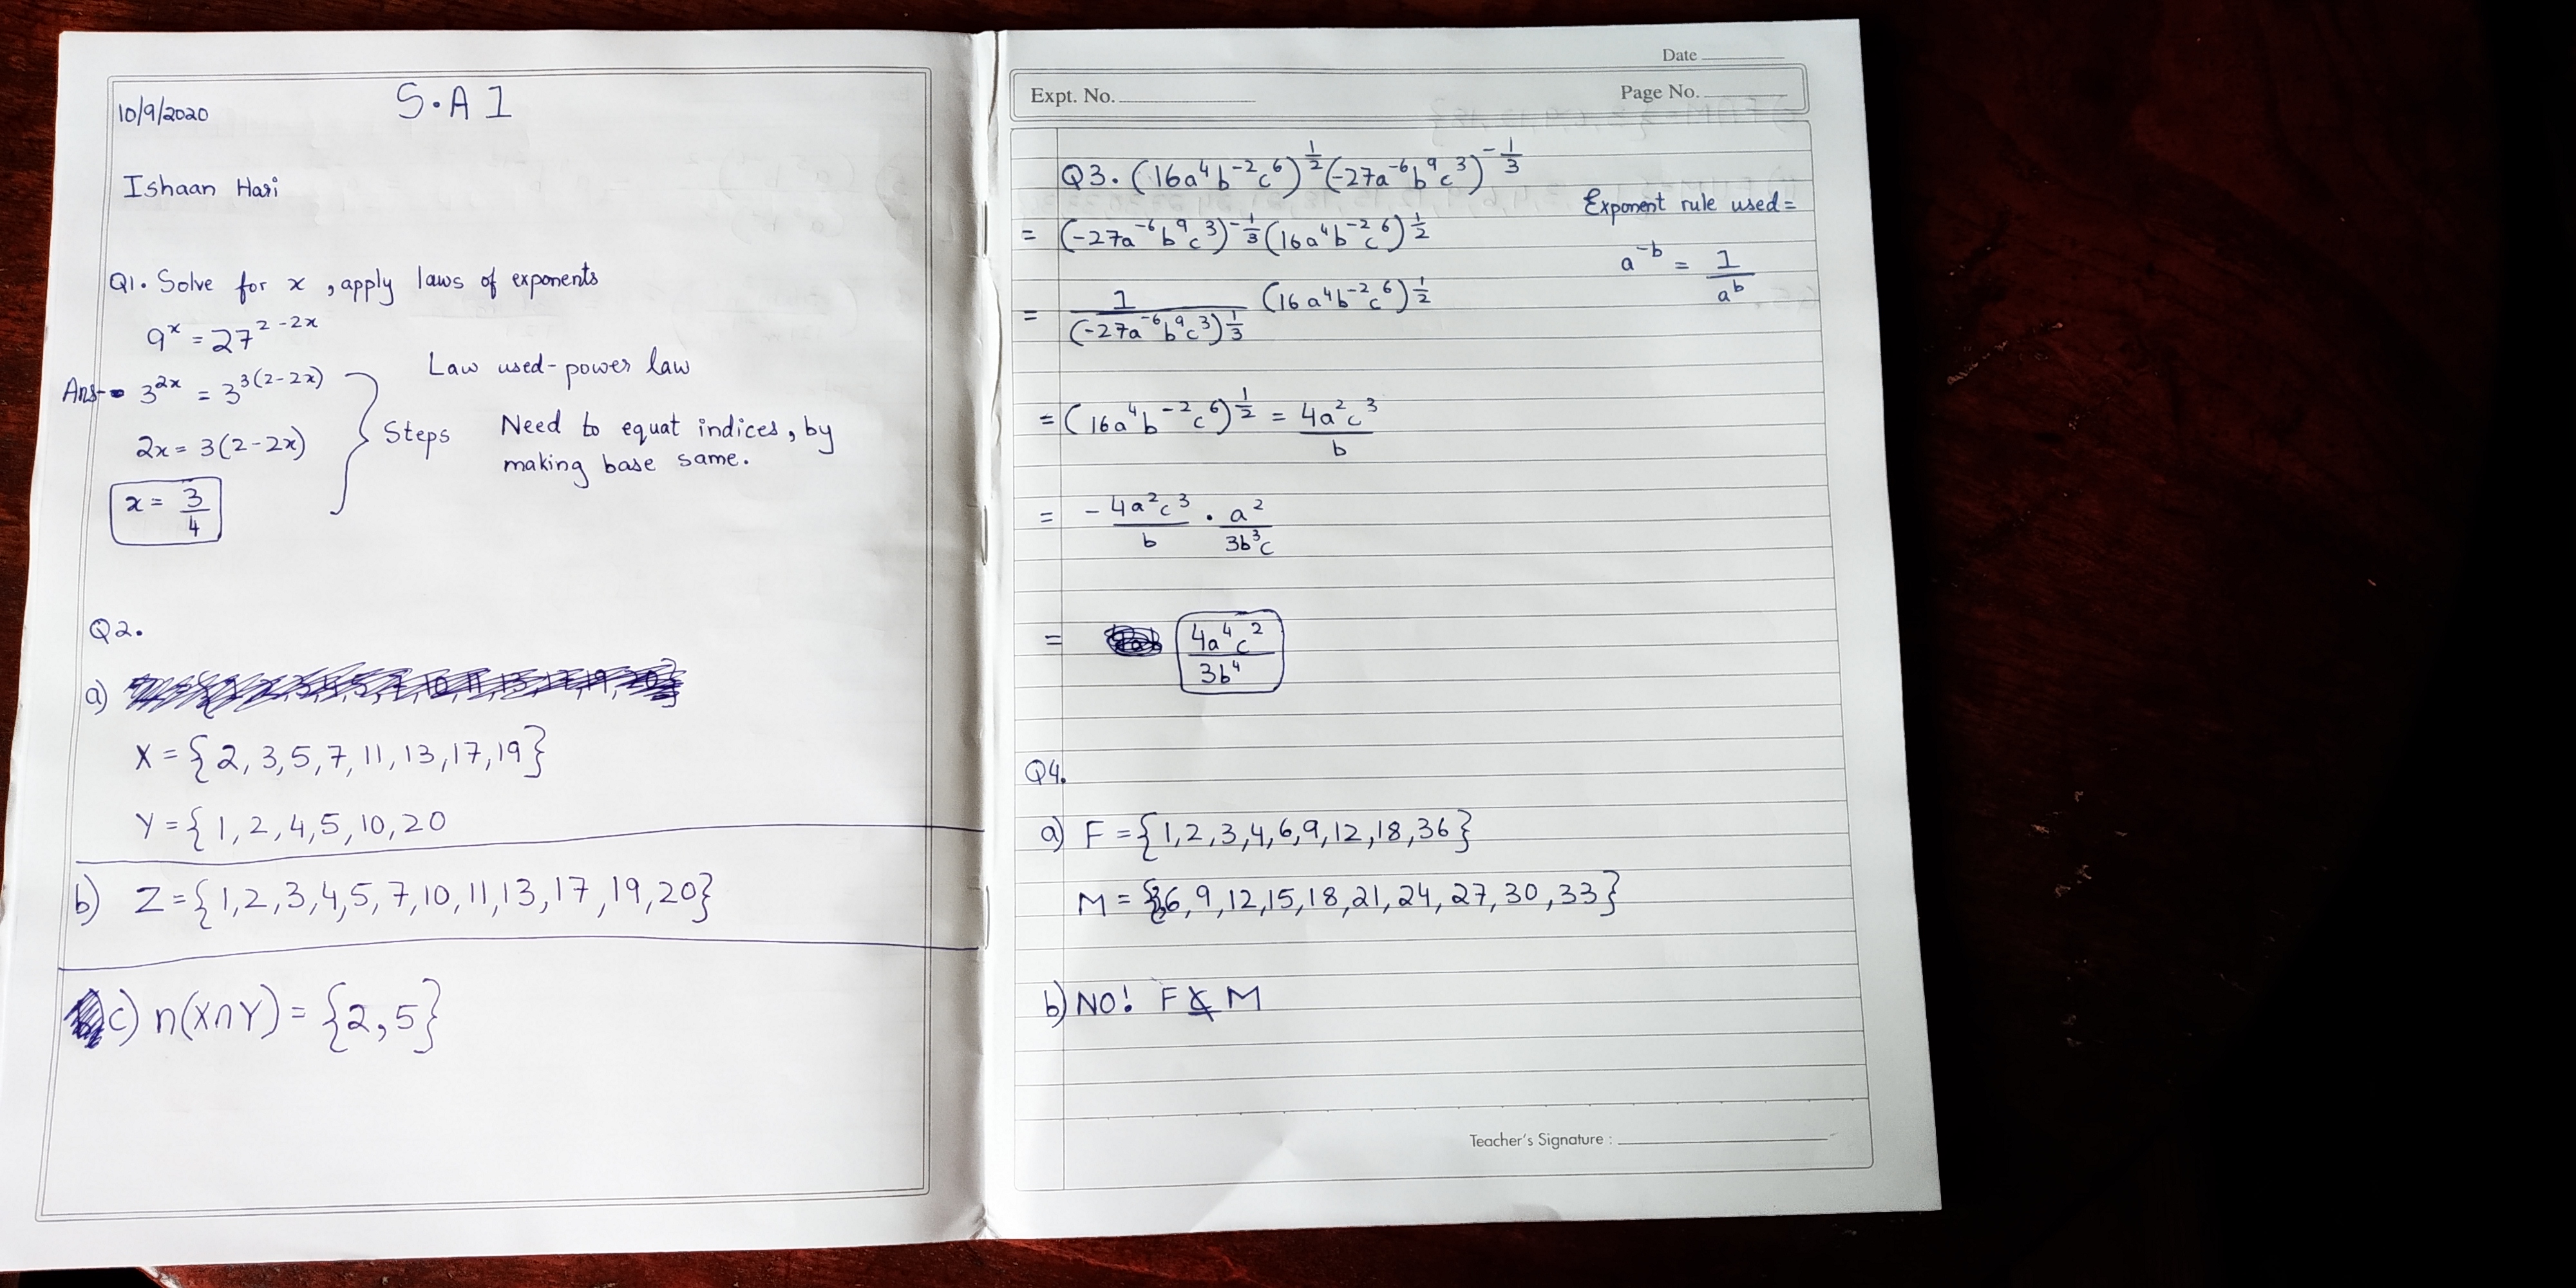 10/9/2020
S.A 1
Ishaan Hari
Q1. Solve for x, apply laws of exponents
9^x = 27^(2-2x)
Law used-power law
Ans- 3^(2x) = 3^(3(2-2x))
2x = 3(2-2x)
Steps
Need to equat indices, by
making base same.
x = 3/4
Q2.
a)
X = {2, 3, 5, 7, 11, 13, 17, 19}
Y = {1, 2, 4, 5, 10, 20
b) Z = {1, 2, 3, 4, 5, 7, 10, 11, 13, 17, 19, 20}
c) n(X∩Y) = {2, 5}
Date
Expt. No.
Page No.
Q3. (16a^4b^-2c^6)^(1/2) (-27a^-6b^9c^3)^(-1/3)
Exponent rule used =
= (-27a^-6b^9c^3)^(-1/3) (16a^4b^-2c^6)^(1/2)
a^-b = 1/a^b
= 1/(-27a^-6b^9c^3)^(1/3) (16a^4b^-2c^6)^(1/2)
= (16a^4b^-2c^6)^(1/2) = 4a^2c^3/b
= - 4a^2c^3/b . a^2/3b^3c
= 4a^4c^2/3b^4
Q4.
a) F = {1, 2, 3, 4, 6, 9, 12, 18, 36}
M = {3, 6, 9, 12, 15, 18, 21, 24, 27, 30, 33}
b) NO! F ⊈ M
Teacher's Signature :